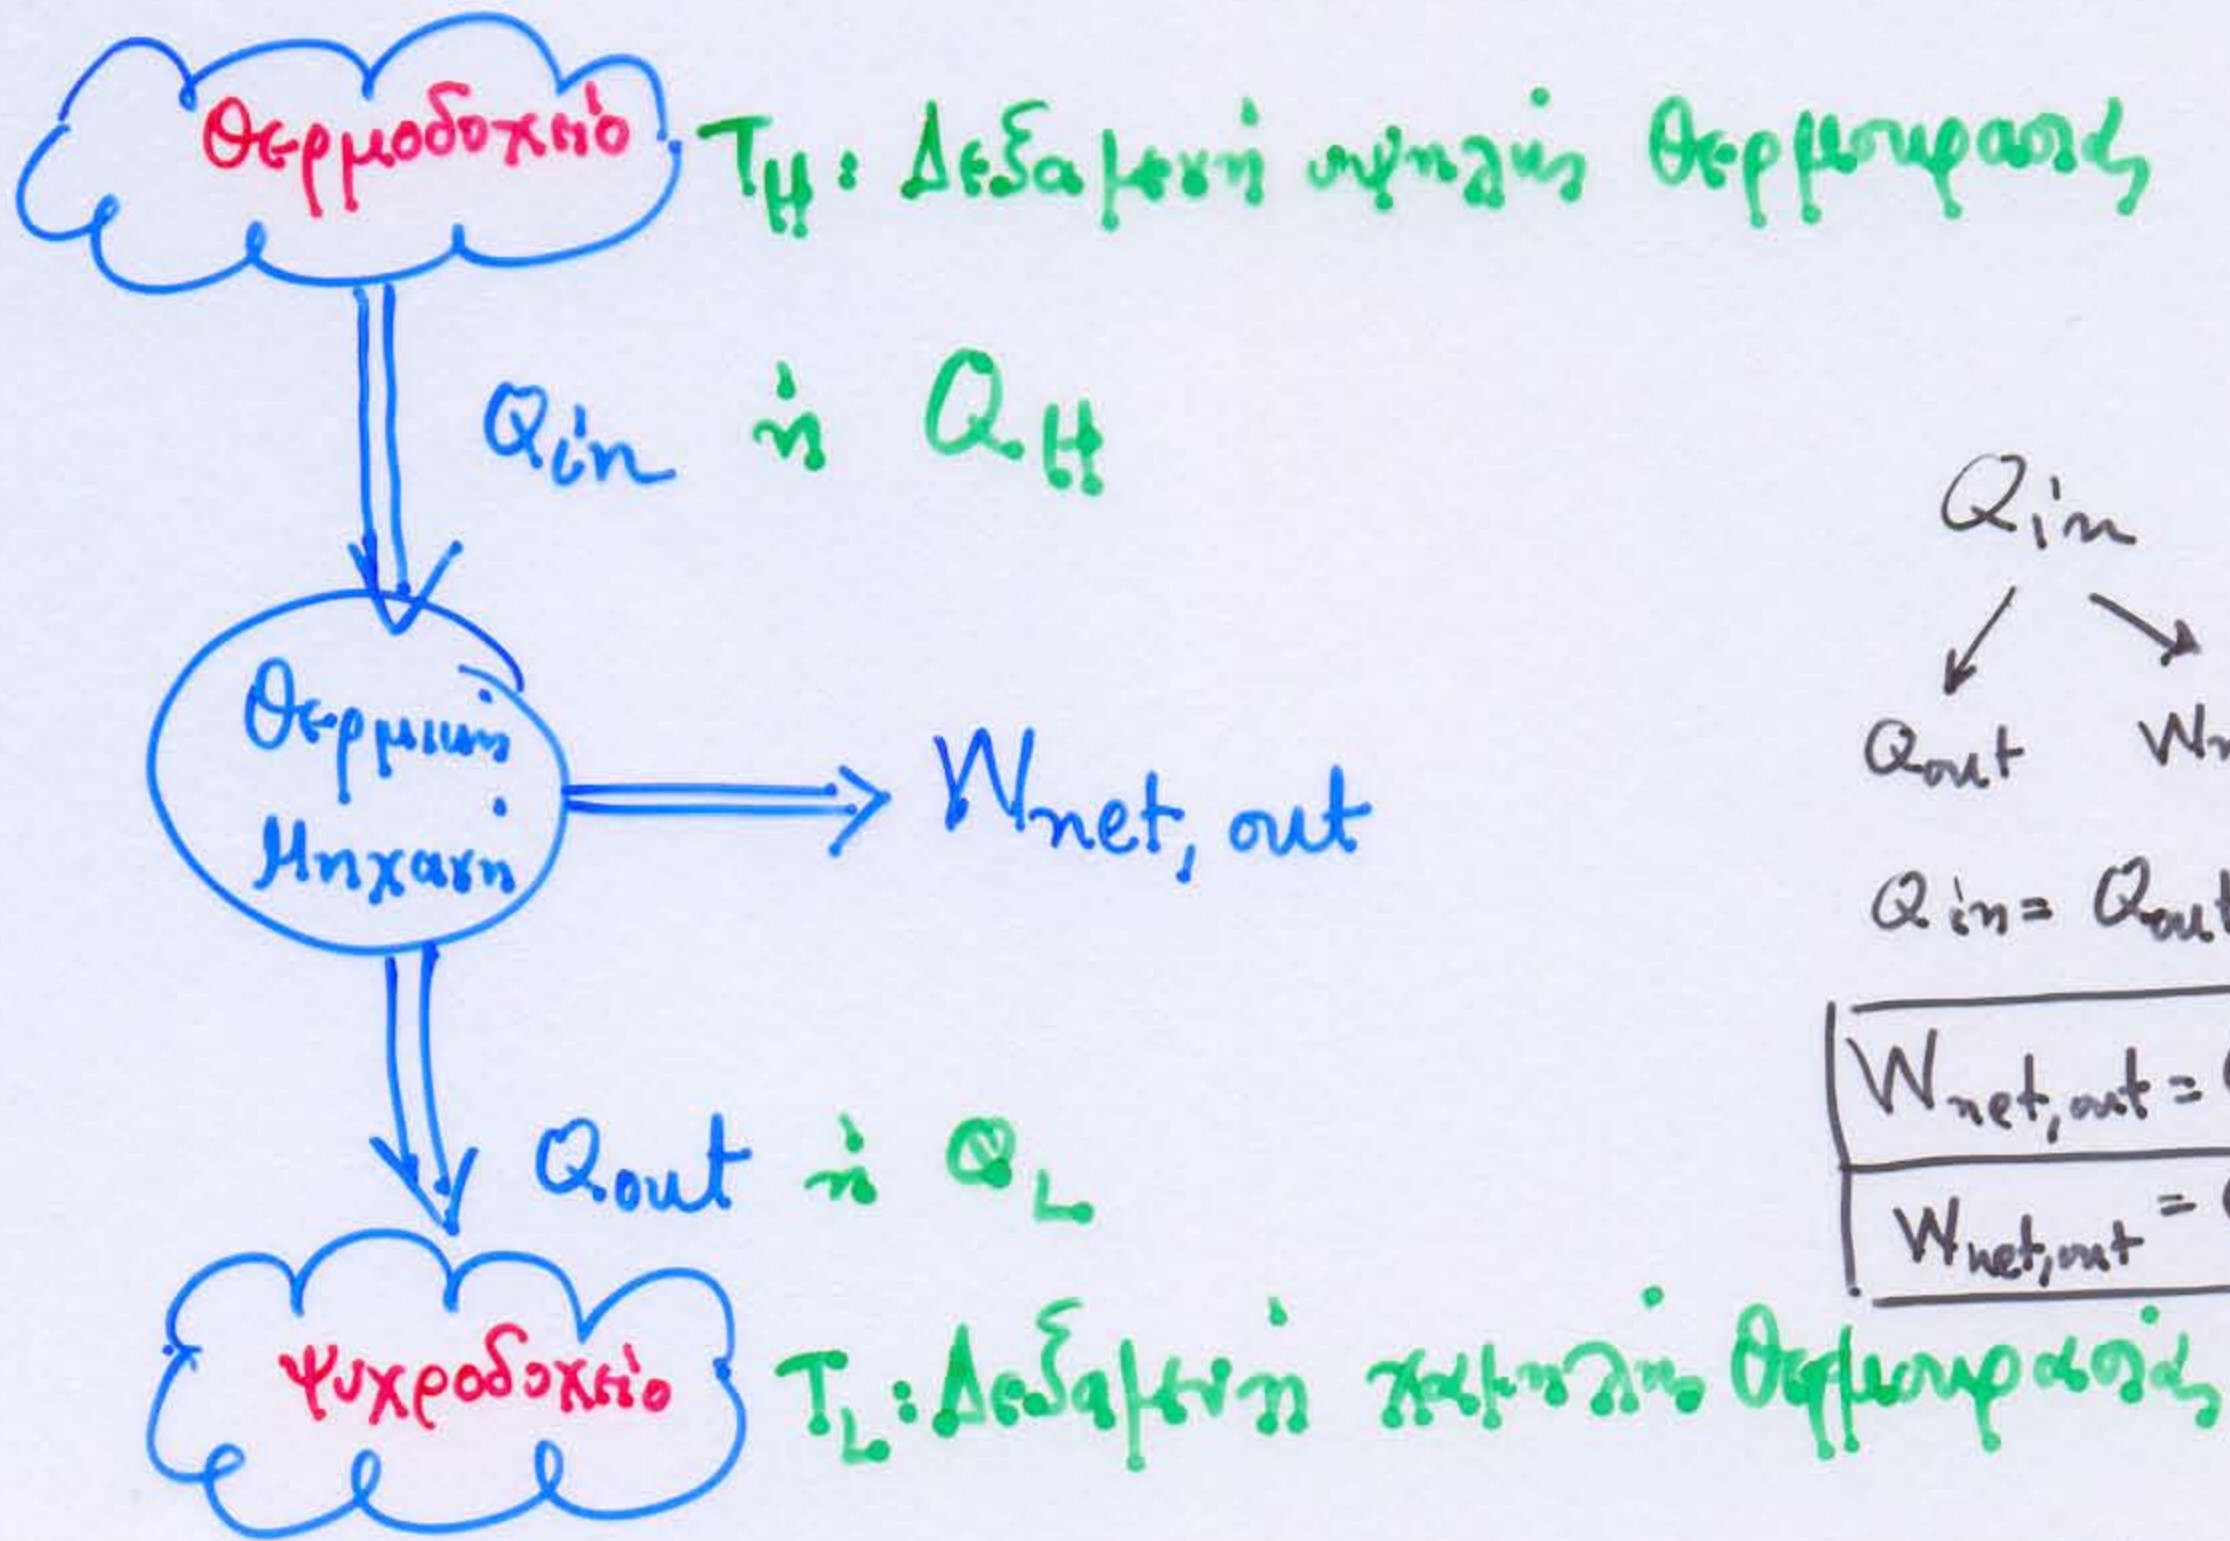 Θερμοδοχείο
T_H: Δεξαμενή υψηλής θερμοκρασίας
Qin ή Q_H
Θερμική
Μηχανή
W_net, out
Qout ή Q_L
Ψυχροδοχείο
T_L: Δεξαμενή χαμηλής θερμοκρασίας
Qin
Qout
Qin = Qout
W_net,out =
W_net,out =